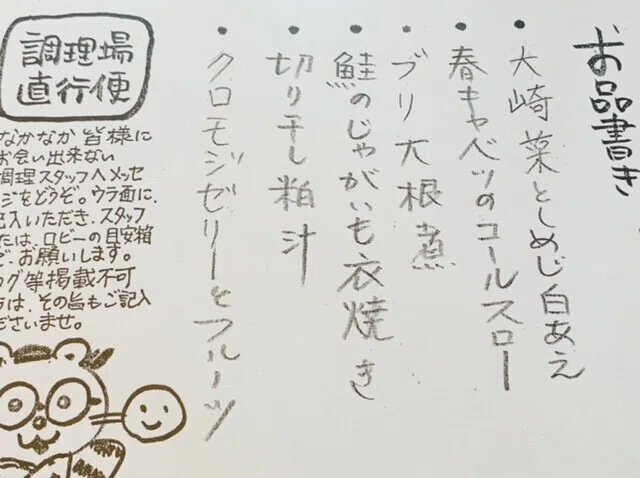 お品書き
・大崎菜としめじ白あえ
・春キャベツのコールスロー
・ブリ大根煮
・鮭のじゃがいも衣焼き
・切り干し粕汁
・クロモジゼリーとフルーツ
調理場
直行便
なかなか皆様に
お会い出来ない
調理スタッフへメッセ
ジをどうぞ。ウラ面に、
記入いただき、スタッフ
たは、ロビーの目安箱
で、お願いします。
グ等掲載不可
は、その旨もご記入
ださいませ。